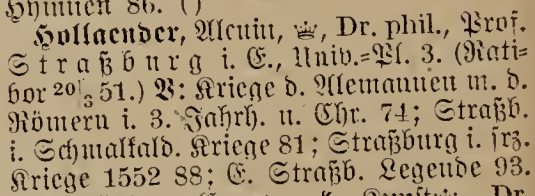 Hymnen 86. ()
Hollaender, Alcuin, ♕, Dr. phil., Prof.
Straßburg i. E., Univ.=Pl. 3. (Rati-
bor 20/3 51.) V: Kriege d. Alemannen m. d.
Römern i. 3. Jahrh. n. Chr. 74; Straßb.
i. Schmalkald. Kriege 81; Straßburg i. frz.
Kriege 1552 88; E. Straßb. Legende 93.
Dr.